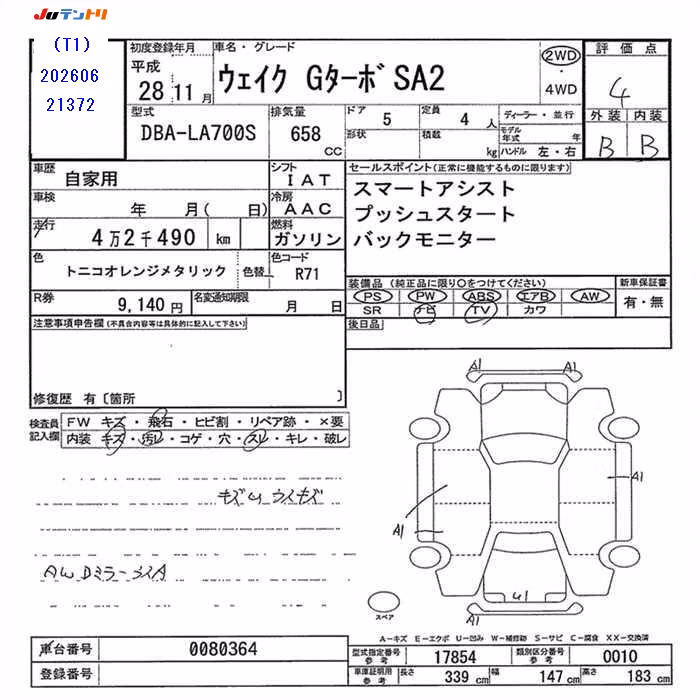 JUテントリ
(T1)
202606
21372
初度登録年月
平成
28 11月
車名・グレード
ウェイク GターボSA2
2WD
・
4WD
評価点
4
外装 内装
B B
型式
DBA-LA700S
排気量
658
CC
ドア
5
定員
4人
形状
積載
kg
ディーラー・並行
モデル年式 年
ハンドル 左・右
車歴
自家用
シフト
IAT
車検
年 月( 日)
冷房
AAC
走行
4万2千490 km
燃料
ガソリン
色
トニコオレンジメタリック
色替
色コード
R71
R券
9,140円
名変通知期限
月 日
セールスポイント(正常に機能するものに限ります)
スマートアシスト
プッシュスタート
バックモニター
装備品(純正品に限り○をつけてください)
PS PW ABS エアB AW
SR ナビ TV カワ
新車保証書
有・無
後日品
注意事項申告欄(不具合内容等は具体的に記入して下さい)
修復歴 有〔箇所 〕
検査員
記入欄
FW キズ・飛石・ヒビ割・リペア跡・×要
内装 キズ・汚レ・コゲ・穴・スレ・キレ・破レ
キズU ウスキズ
AW Dミラースレ
A1
A1
A1
A1
A1
A1
U1
A1
スペア
A－キズ E－エクボ U－凹み W－補修跡 S－サビ C－腐食 XX－交換済
車台番号
0080364
登録番号
型式指定番号
参考
17854
類別区分番号
参考
0010
車庫証明用
参考
長さ
339 cm
幅
147 cm
高さ
183 cm